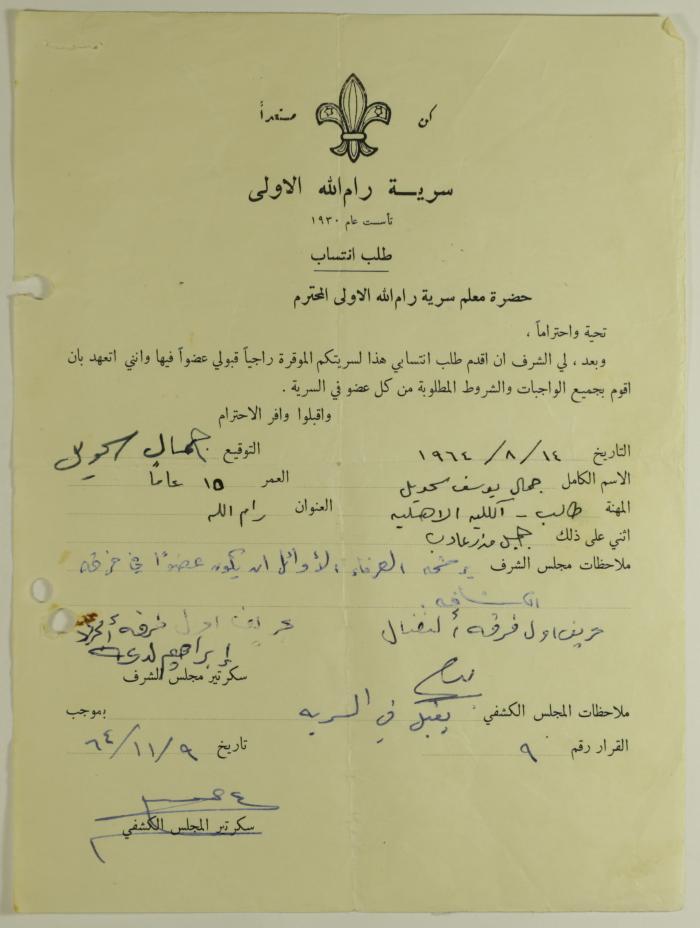 كن مستعداً
سرية رام الله الاولى
تأسست عام ١٩٣٠
طلب انتساب
حضرة معلم سرية رام الله الاولى المحترم
تحية واحتراماً ،
وبعد ، لي الشرف ان اقدم طلب انتسابي هذا لسريتكم الموقرة راجياً قبولي عضواً فيها وانني اتعهد بان
اقوم بجميع الواجبات والشروط المطلوبة من كل عضو في السرية .
واقبلوا وافر الاحترام
التاريخ ١٤ / ٨ / ١٩٦٤ التوقيع جمال
الاسم الكامل جمال يوسف العمر ١٥ عاماً
المهنة طالب - الكلية الاهلية العنوان رام الله
اثني على ذلك جميل
ملاحظات مجلس الشرف يرشحه العرفاء الأوائل ان يكون عضواً في فرقة
الكشافة .
عريف اول فرقة النضال عريف اول فرقة
إبراهيم
سكرتير مجلس الشرف
ملاحظات المجلس الكشفي يقبل في السرية بموجب
القرار رقم ٩ تاريخ ٩ / ١١ / ٦٤
سكرتير المجلس الكشفي